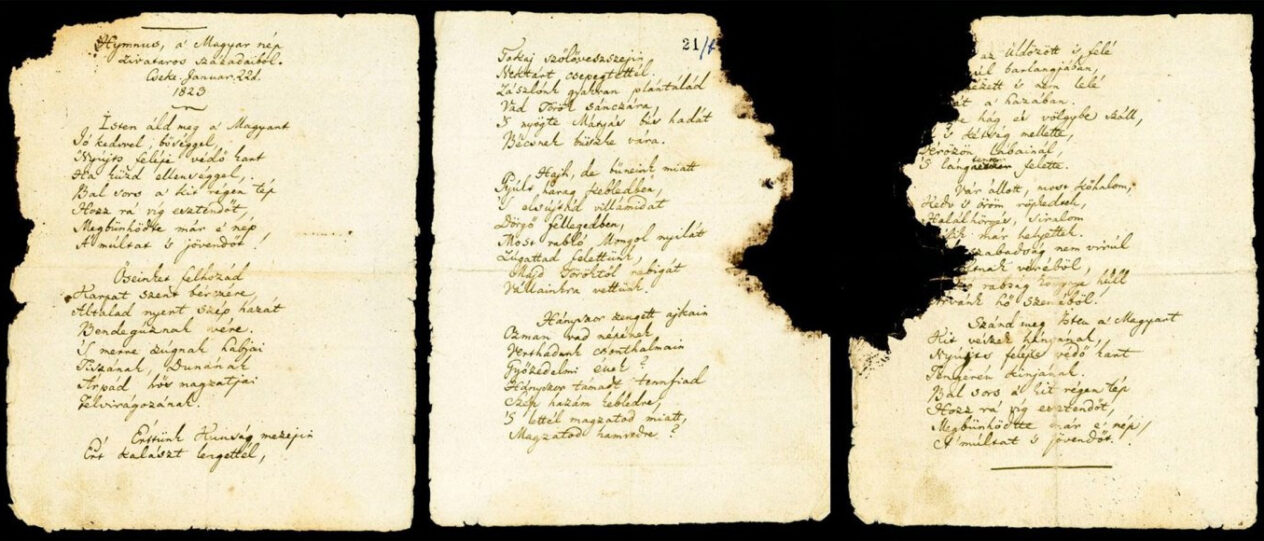 Hymnus, a' Magyar nép
zivataros századaiból.
Cseke. Januar. 22d.
1823
Isten áld meg a' Magyart
Jó kedvvel, bőséggel,
Nyújts feléje védő kart
Ha küzd ellenséggel,
Bal sors a' kit régen tép
Hozz rá víg esztendőt,
Megbünhödte már e' nép
A' múltat 's jövendőt!
Őseinket felhozád
Kárpát szent bérczére,
Általad nyert szép hazát
Bendegúznak vére.
'S merre zúgnak habjai
Tiszának, Dunának
Árpád hős magzatjai
Felvirágozának.
Értünk Kunság mezejin
Ért kalászt lengettél,
21/
Tokaj szőlővesszejin
Nektárt csepegtettél.
Zászlónk gyakran plántálád
Vad Török sánczára,
'S nyögte Mátyás bús hadát
Bécsnek büszke vára.
Hajh, de bűneink miatt
Gyúlt harag kebledben,
'S elsújtád villámidat
Dörgő fellegedben,
Most rabló Mongol nyilát
Zúgattad felettünk,
Majd Töröktől rabigát
Vállainkra vettünk.
Hányszor zengett ajkain
Ozman vad népének
Vert hadunk csonthalmain
Győzedelmi ének?
Hányszor támadt tennfiad
Szép hazám kebledre,
'S lettél magzatod miatt,
Magzatod hamvedre?
az üldözött 's felé
barlangjában,
's nem lelé
a' hazában.
hág és völgybe száll,
's kétség mellette,
Vérözön lábainál,
'S láng felette.
Vár állott, most kőhalom,
Kedv 's öröm röpkedtek,
Halálhörgés, siralom
már helyettek.
szabadság nem virúl
véréből,
rabság könnye hull
hő szeméből.
Szánd meg Isten a' Magyart
Kit vészek hányának,
Nyújts feléje védő kart
Tengerén kínjának.
Bal sors a' kit régen tép
Hozz rá víg esztendőt,
Megbünhödte már e' nép
A' múltat 's jövendőt.